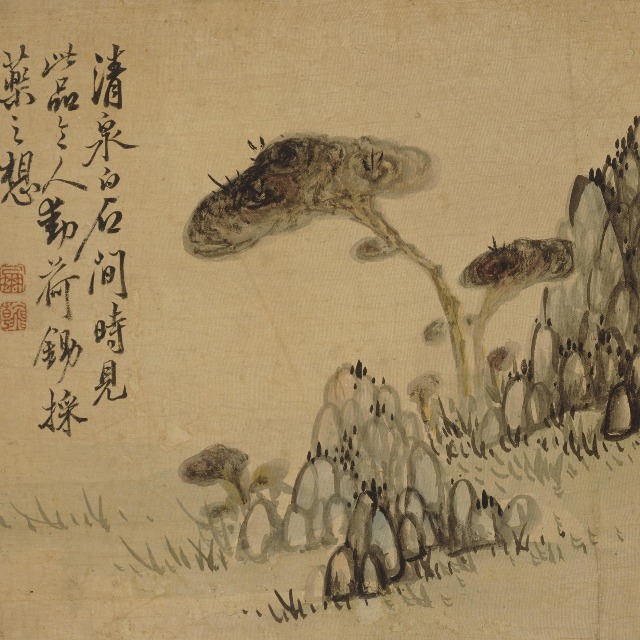 清泉白石間時見
蕊之人動荷鋤採
藥之想